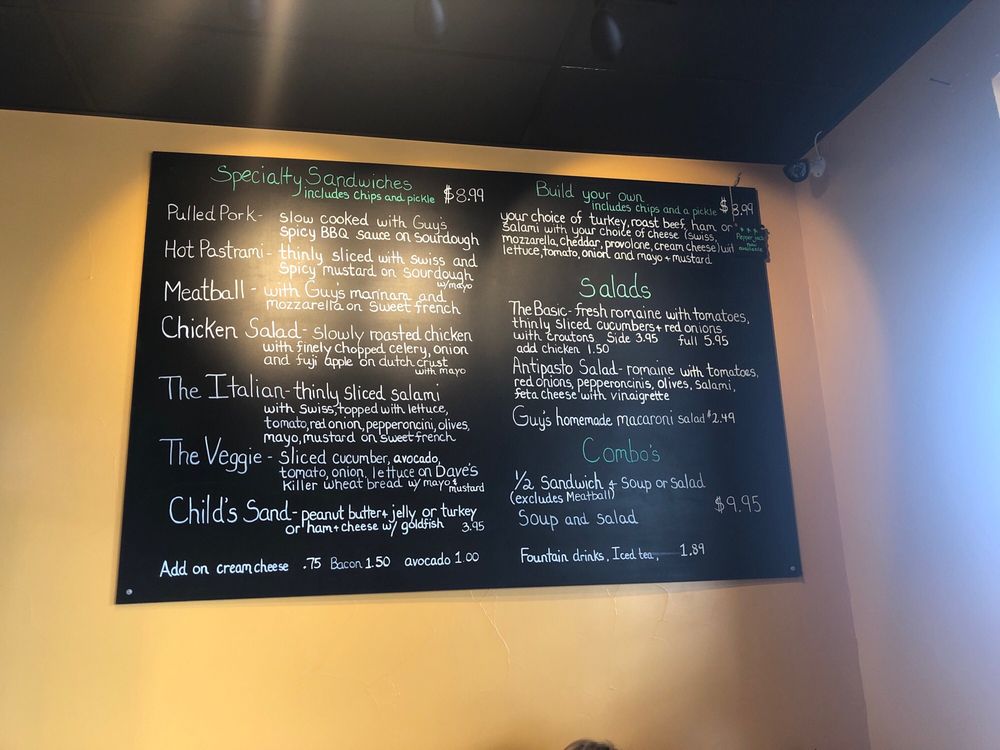 Specialty Sandwiches
includes chips and pickle $8.99
Pulled Pork- slow cooked with Guy's
spicy BBQ sauce on sourdough
Hot Pastrami- thinly sliced with swiss and
spicy mustard on sourdough
w/mayo
Meatball - with Guy's marinara and
mozzarella on sweet french
Chicken Salad- Slowly roasted chicken
with finely chopped celery, onion
and fuji apple on dutch crust
with mayo
The Italian- thinly sliced salami
with swiss, topped with lettuce,
tomato, red onion, pepperoncini, olives,
mayo, mustard on sweet french
The Veggie - sliced cucumber, avocado,
tomato, onion, lettuce on Dave's
killer wheat bread w/ mayo &
mustard
Child's Sand- peanut butter + jelly or turkey
or ham + cheese w/ goldfish 3.95
Add on cream cheese .75 Bacon 1.50 avocado 1.00
Build your own
includes chips and a pickle $8.99
your choice of turkey, roast beef, ham or
salami with your choice of cheese (swiss,
mozzarella, cheddar, provolone, cream cheese) wit
lettuce, tomato, onion and mayo + mustard
Pepper jack
now
available
Salads
The Basic- fresh romaine with tomatoes,
thinly sliced cucumbers + red onions
with croutons Side 3.95 full 5.95
add chicken 1.50
Antipasto Salad- romaine with tomatoes,
red onions, pepperoncinis, olives, salami,
feta cheese with vinaigrette
Guy's homemade macaroni salad $2.49
Combo's
1/2 Sandwich + Soup or salad
(excludes Meatball)
$9.95
Soup and salad
Fountain drinks, Iced tea, 1.89